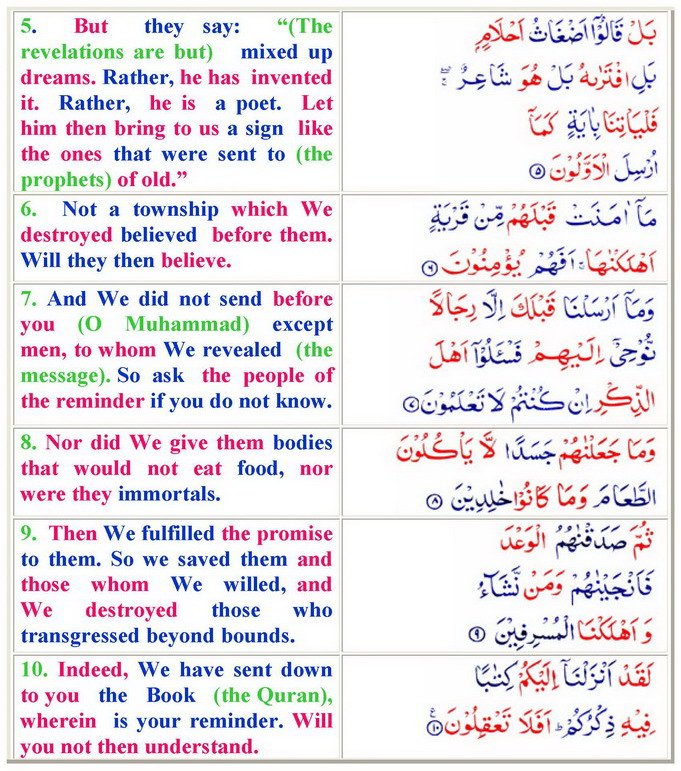 5. But they say: “(The
revelations are but) mixed up
dreams. Rather, he has invented
it. Rather, he is a poet. Let
him then bring to us a sign like
the ones that were sent to (the
prophets) of old.”
بَلْ قَالُوْٓا اَضْغَاثُ اَحْلَامٍۭ
بَلِ افْتَرٰىهُ بَلْ هُوَ شَاعِرٌ ۖۚ
فَلْيَاْتِنَا بِاٰيَةٍ كَمَآ
اُرْسِلَ الْاَوَّلُوْنَ ۝۵
6. Not a township which We
destroyed believed before them.
Will they then believe.
مَآ اٰمَنَتْ قَبْلَهُمْ مِّنْ قَرْيَةٍ
اَهْلَكْنٰهَا ۚ اَفَهُمْ يُؤْمِنُوْنَ ۝۶
7. And We did not send before
you (O Muhammad) except
men, to whom We revealed (the
message). So ask the people of
the reminder if you do not know.
وَمَآ اَرْسَلْنَا قَبْلَكَ اِلَّا رِجَالًا
نُّوْحِىْٓ اِلَيْهِمْ فَسْـَٔلُوْٓا اَهْلَ
الذِّكْرِ اِنْ كُنْتُمْ لَا تَعْلَمُوْنَ ۝۷
8. Nor did We give them bodies
that would not eat food, nor
were they immortals.
وَمَا جَعَلْنٰهُمْ جَسَدًا لَّا يَاْكُلُوْنَ
الطَّعَامَ وَمَا كَانُوْا خٰلِدِيْنَ ۝۸
9. Then We fulfilled the promise
to them. So we saved them and
those whom We willed, and
We destroyed those who
transgressed beyond bounds.
ثُمَّ صَدَقْنٰهُمُ الْوَعْدَ
فَاَنْجَيْنٰهُمْ وَمَنْ نَّشَآءُ
وَ اَهْلَكْنَا الْمُسْرِفِيْنَ ۝۹
10. Indeed, We have sent down
to you the Book (the Quran),
wherein is your reminder. Will
you not then understand.
لَقَدْ اَنْزَلْنَآ اِلَيْكُمْ كِتٰبًا
فِيْهِ ذِكْرُكُمْ ؕ اَفَلَا تَعْقِلُوْنَ ۝۱۰ ع